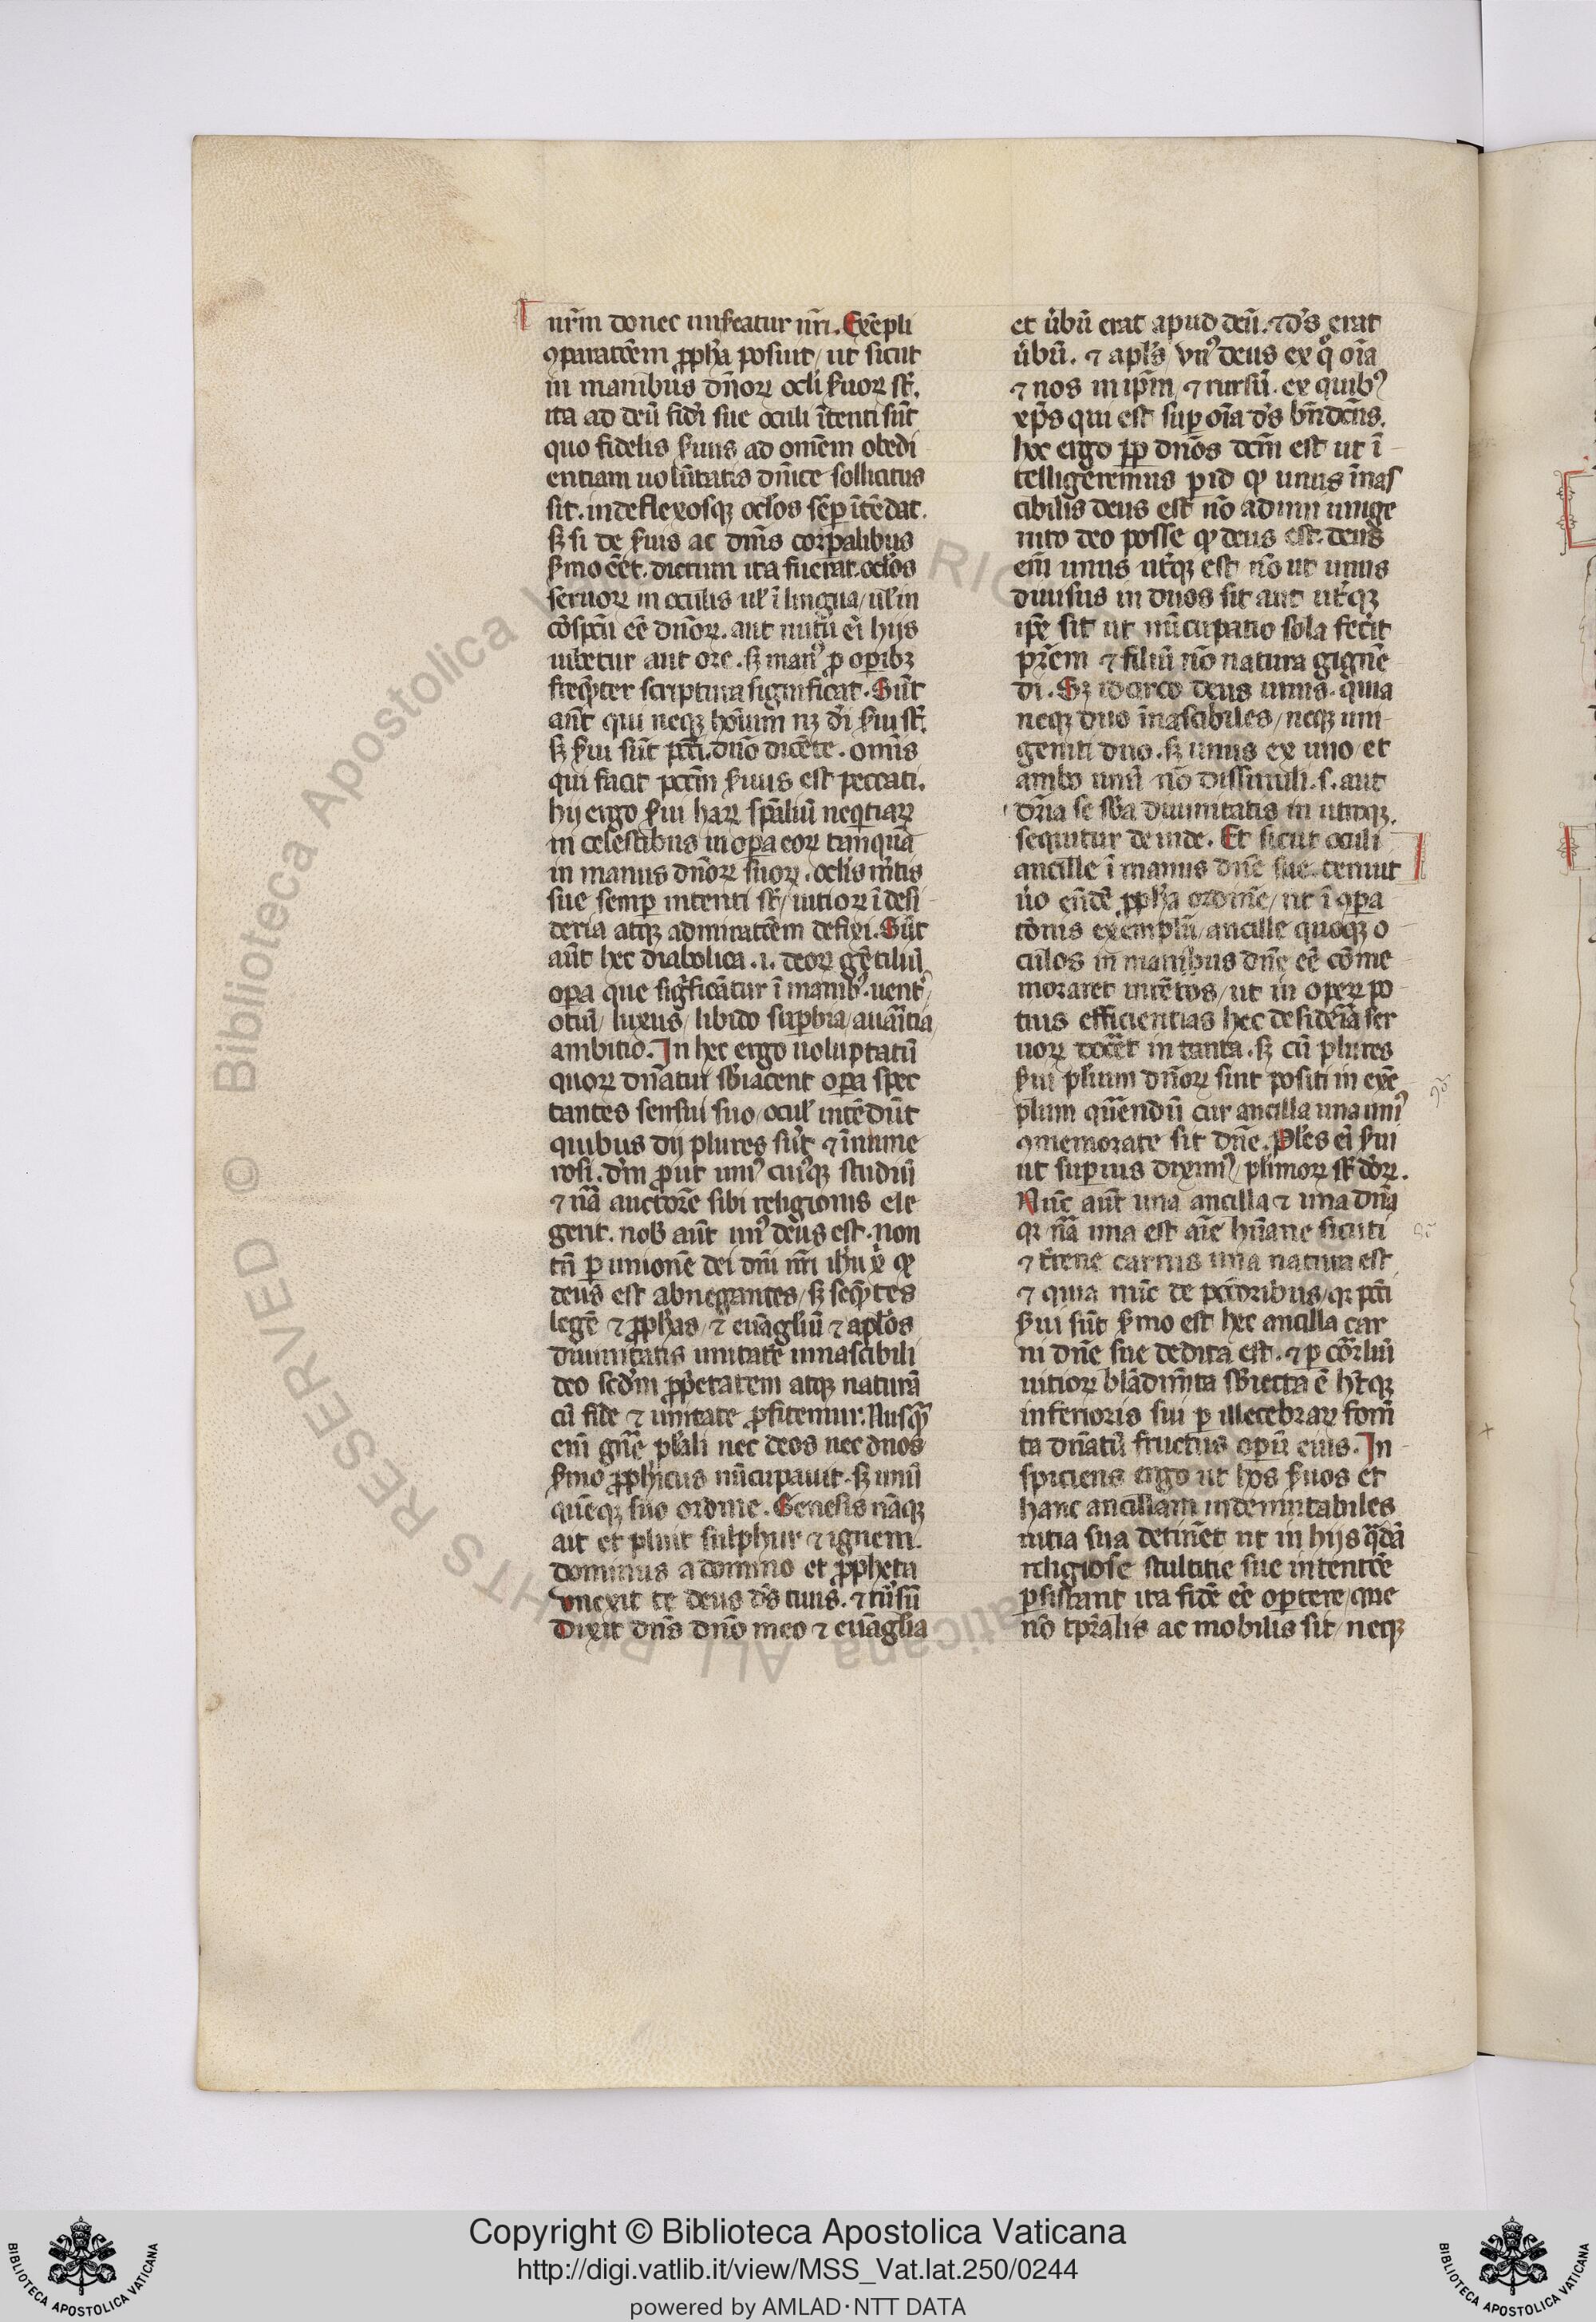 nr̄m donec mis̉eatur nr̄i. Exēpli
ꝯparatōem ꝓph̄a posuit / ut sicut
in manibus dn̄oꝝ oc̄li s̉uoꝝ st̄.
ita ad deū fid̓i sue oculi ītenti sūt
quo fidelis s̉uus ad omēm obedi
entiam uolūtatis dn̄ice sollicitus
sit. indeflexosqꝫ oc̄los sēꝑ ītēdat.
sꝫ si de s̉uis ac dn̄is corꝑalibus
s̉mo eēt. dictum ita fuerat. oc̄los
seruoꝝ in oculis ul̓ ī lingua / ul̓ in
cōspc̄u eē dn̄oꝝ. aut nutū ei̓ hijs
iubetur aut ore. sꝫ man⁹ ꝓ oꝑibꝫ
freq̄nter scriptura significat. Sūt
aūt qui neqꝫ hoīum nꝫ d̓i s̉ui st̄.
sꝫ s̉ui sūt pc̄ti. dn̄o dicēte. omīs
qui facit pc̄tm s̉uus est peccati.
hij ergo s̉ui haꝝ spālium neq̓tiaꝝ
in celestibus in oꝑa eoꝝ tanquā
in manus dn̄oꝝ suoꝝ. oc̄lis mētis
sue semꝑ intenti st̄ / uitioꝝ ī desi
deria atqꝫ admiratōem defixi. Sūt
aūt hec diabolica .i. deoꝝ gētiliū
oꝑa que sig̓ficātur ī manib⁹. uent̓ /
otiū / luxus / libido suꝑbia / auaritia /
ambitio. In hec ergo uoluptatū
quoꝝ dn̄atui sb̓iacent oꝑa spec
tantes sensui suo / ocul̓ intēdūt
quibus dij plures sūt ⁊ īnume
rosi. d̓m ꝓut uni⁹ cui⁹qꝫ studiū
⁊ nā auctorē sibi religionis ele
gerit. nob̓ aūt un⁹ deus est. non
tn̄ ꝑ unionē dei dn̄i nr̄i ih̄u x̓ qđ
deus est abnegantes / sꝫ seq̄ntes
legē ⁊ ꝓph̄as / ⁊ euāgliū ⁊ apl̄os
diuinitatis unitatē innascibili
deo sed̓m ꝓp̓etatem atqꝫ naturā
cū fide ⁊ unitate ꝓfitemur. Nusq̄
eni̓ gn̄e pl̓ali nec deos nec dnos
s̉mo ꝓph̄icus nūcupauit. sꝫ unū
quēqꝫ suo ordine. Genesis nāqꝫ
ait et pluit sulphur ⁊ ignem
dominus a domino et ꝓpheta
vnexit te deus d̓s tuus. ⁊ rur̓sū
Dixit dn̄s dn̄o meo ⁊ euāglia
et ūbū erat apud deū. ⁊ d̓s erat
ūbū. ⁊ apl̓s vn⁹ deus ex q̊ oīa
⁊ nos in ip̄m / ⁊ rursū. ex quib⁹
xp̄s qui est suꝑ oīa d̓s bn̄dc̄us.
hec ergo ꝓp dn̄os dc̄m est ut ī
telligeremus ꝑ id qđ unus īnas
cibilis deus est nō adimi unige
nito deo posse qđ deus est. deus
eni̓ unus ut̓qꝫ est nō ut unus
diuisus in duos sit aut ut̓qꝫ
ip̄e sit ut nūcupatio sola fec̓it
pr̄em ⁊ filiū nō natura gignē
di. Sꝫ idcirco deus unus. quia
neqꝫ duo īnascibiles / neqꝫ uni
geniti duo. sꝫ unus ex uno / et
ambo unū nō dissimili .s. aut
dr̄ia se sb̓a diuinitatis in utroqꝫ.
sequitur deinde. Et sicut oculi
ancille ī manus dn̄e sue. tenuit
ūo eūdē ꝓph̄a ordinē / ut ī oꝑa
tōnis exemplū / ancille quoqꝫ o
culos in manibus dn̄e eē cōme
moraret intētos / ut in oꝑeꝝ po
tius efficientias hec desideria ser
uoꝝ docēt intanta. sꝫ cū plures
s̉ui plium dn̄oꝝ sint positi in exē
plum qr̄endū cur ancilla una uni⁹
ꝯmemorate sit dn̄e. Pl̓es ei̓ s̉ui
ut suꝑius diximus / pl̓imoꝝ st̄ d̓oꝝ.
Nūc aūt una ancilla ⁊ una dn̄a
qꝛ nā una est aīe hūane sicuti
⁊ t̓rene carnis una natura est
⁊ quia nūc de pcc̄toribus / qꝛ pc̄ti
s̉ui sūt s̉mo est hec ancilla car
ni dn̄e sue dedita est. ⁊ ꝑ cōr̄liū
uitioꝝ blādim̄ta sb̓iecta ē h̄tqꝫ
inferioris sui ꝑ illecebraꝝ fom̄
ta dn̄atū fructus opū eius. In
spiciens ergo ut hos s̉uos et
hanc ancillam indemutabiles
uitia sua detinēt ut in hijs q̄dā
religiose stultitie sue intentōe
ꝑsistant ita fidē eē oꝑtere / que
nō tꝑalis ac mobilis sit / neqꝫ
Copyright © Biblioteca Apostolica Vaticana
http://digi.vatlib.it/view/MSS_Vat.lat.250/0244
powered by AMLAD·NTT DATA
BIBLIOTECA APOSTOLICA VATICANA
BIBLIOTECA APOSTOLICA VATICANA
© Biblioteca Apostolica Vaticana ALL RIGHTS RESERVED